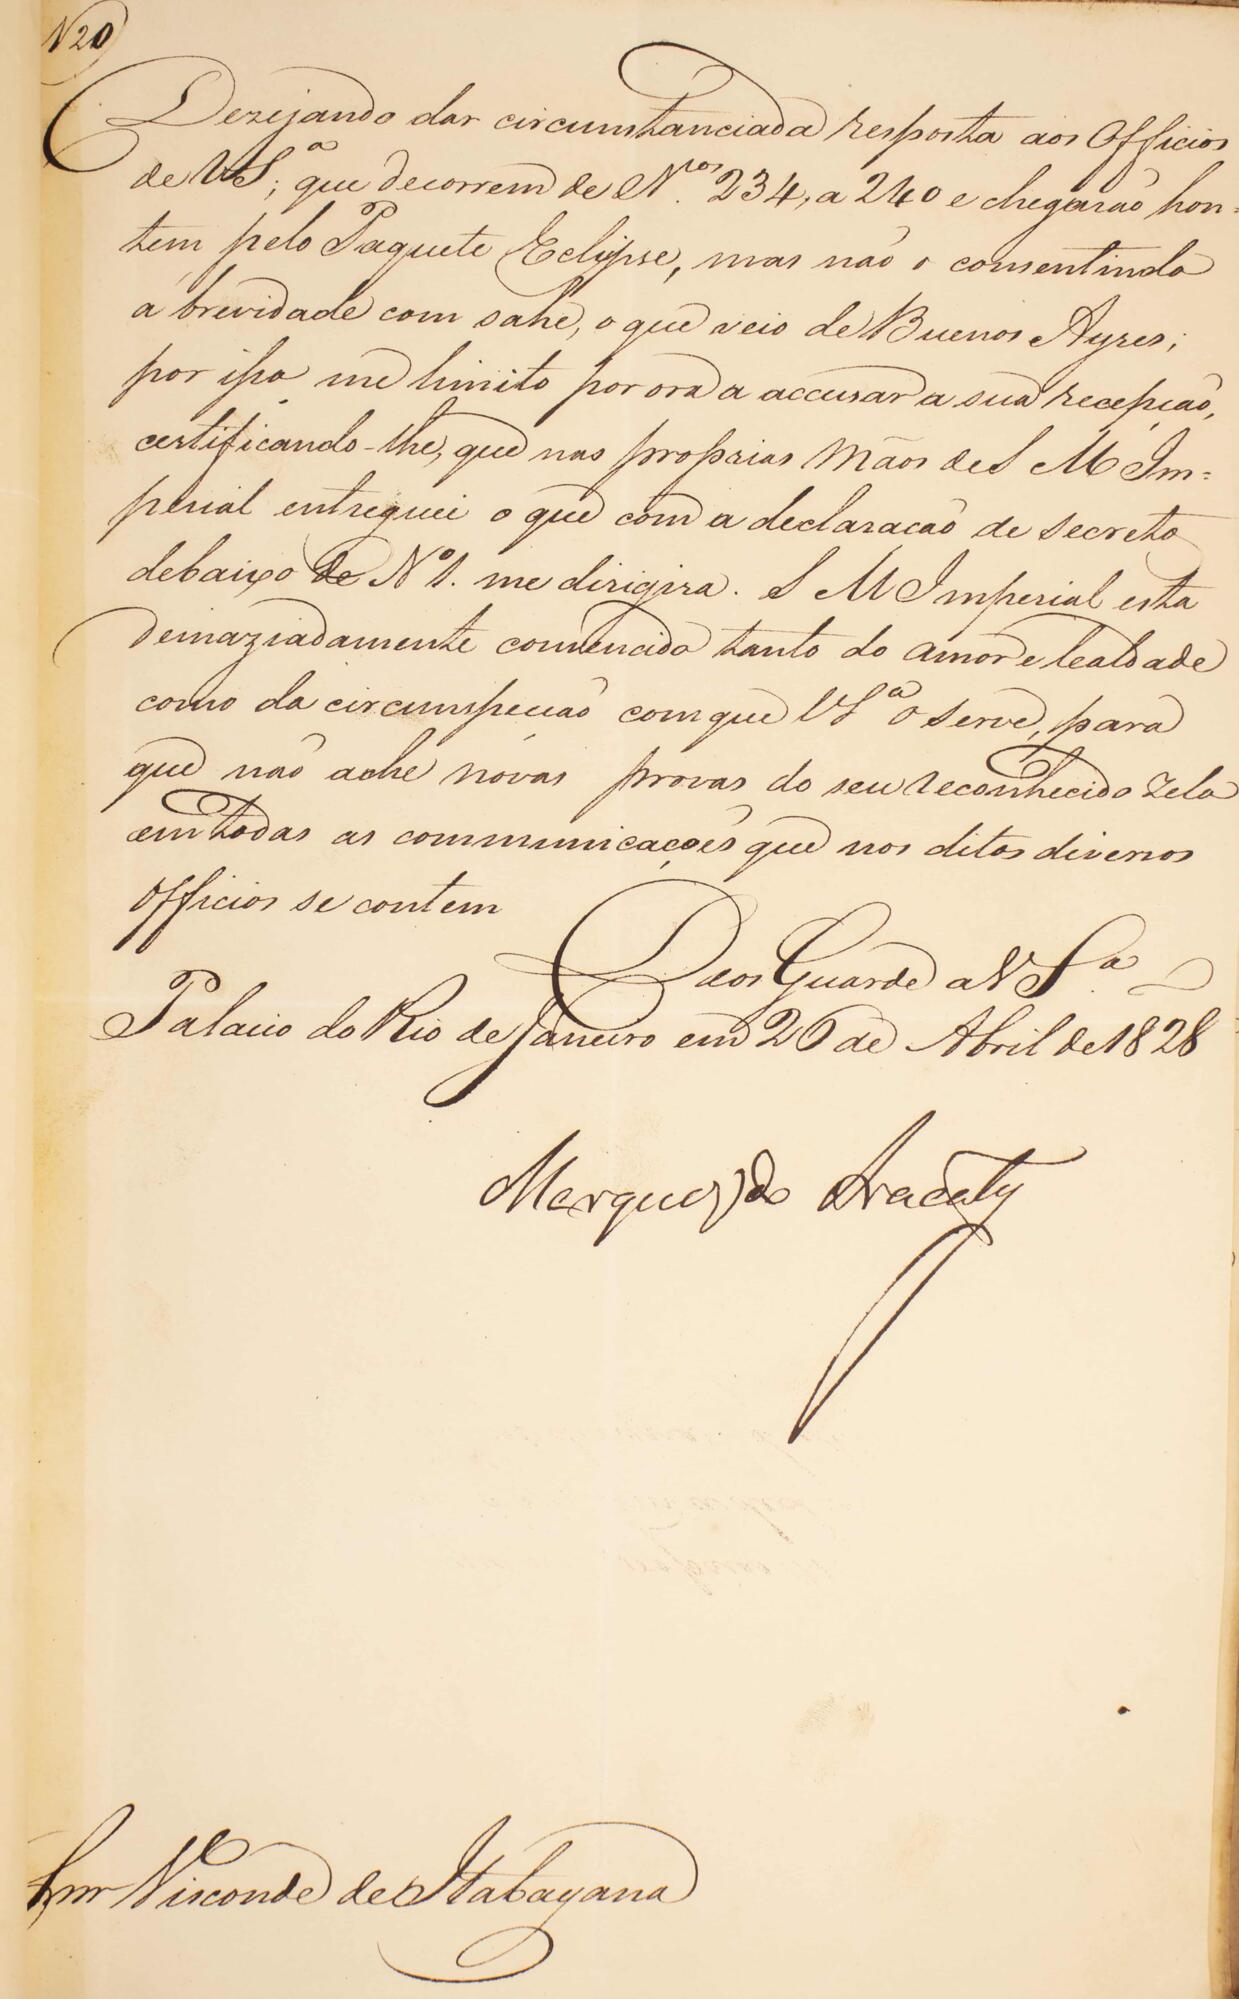 N 20
Dezejando dar circunstanciada resposta aos Officios
de VS.ª; que decorrem de N.ºˢ 234, a 240 e chegarão hon=
tem pelo Paquete Eclipse, mas não o consentindo
a brevidade com sahe, o que veio de Buenos Ayres;
por isso me limito por ora a accusar a sua recepção,
certificando-lhe, que nas proprias Mãos de S M Im=
perial entreguei o que com a declaração de secreto
debaixo de Nº 1. me dirigira. S M Imperial esta
demaziadamente convencido tanto do amor e lealdade
como da circunspecção com que VSª o serve, para
que não ache novas provas do seu reconhecido zelo
em todas as communicações que nos ditos diversos
Officios se contem
Deos Guarde a VS.ª
Palacio do Rio de Janeiro em 26 de Abril de 1828
Marquez do Aracaty
Snr Visconde de Itabayana